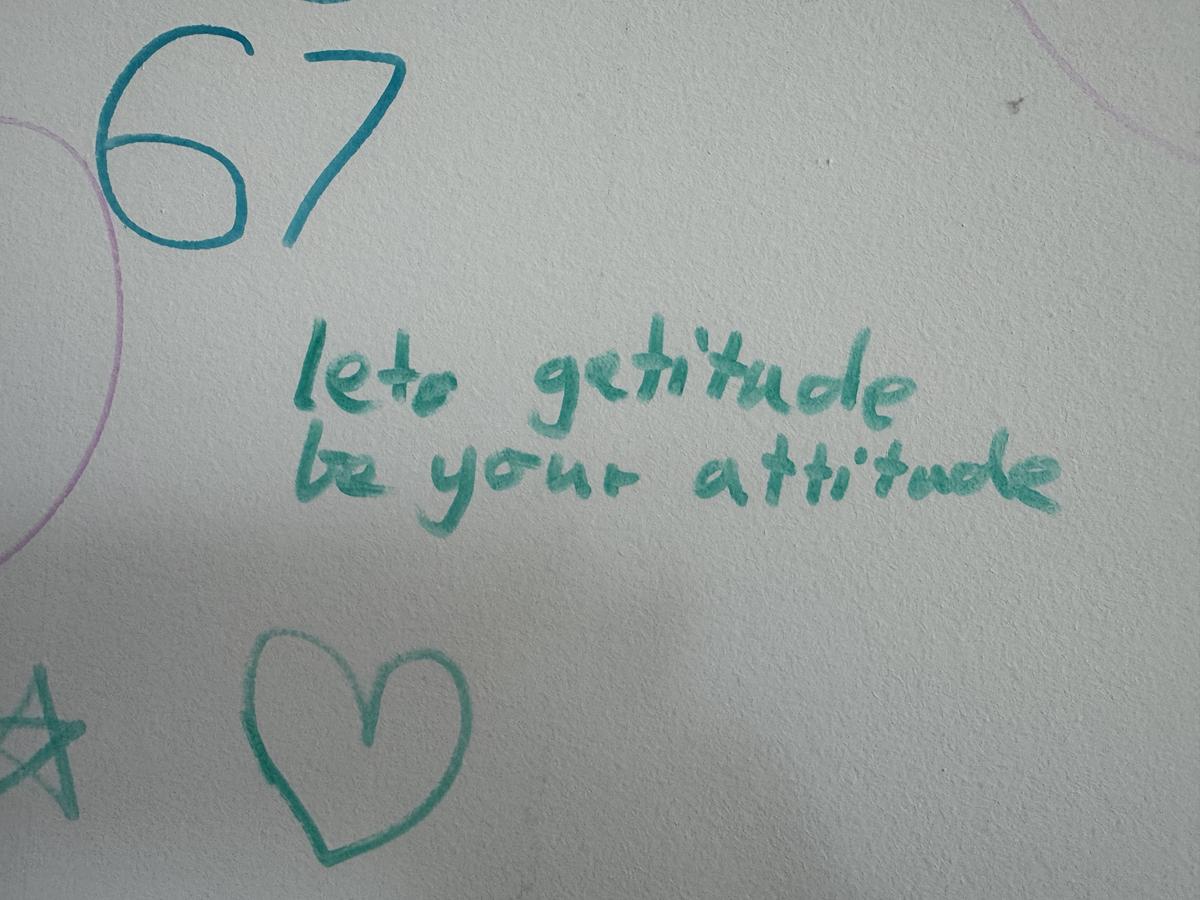 67
leto getitude
be your attitude